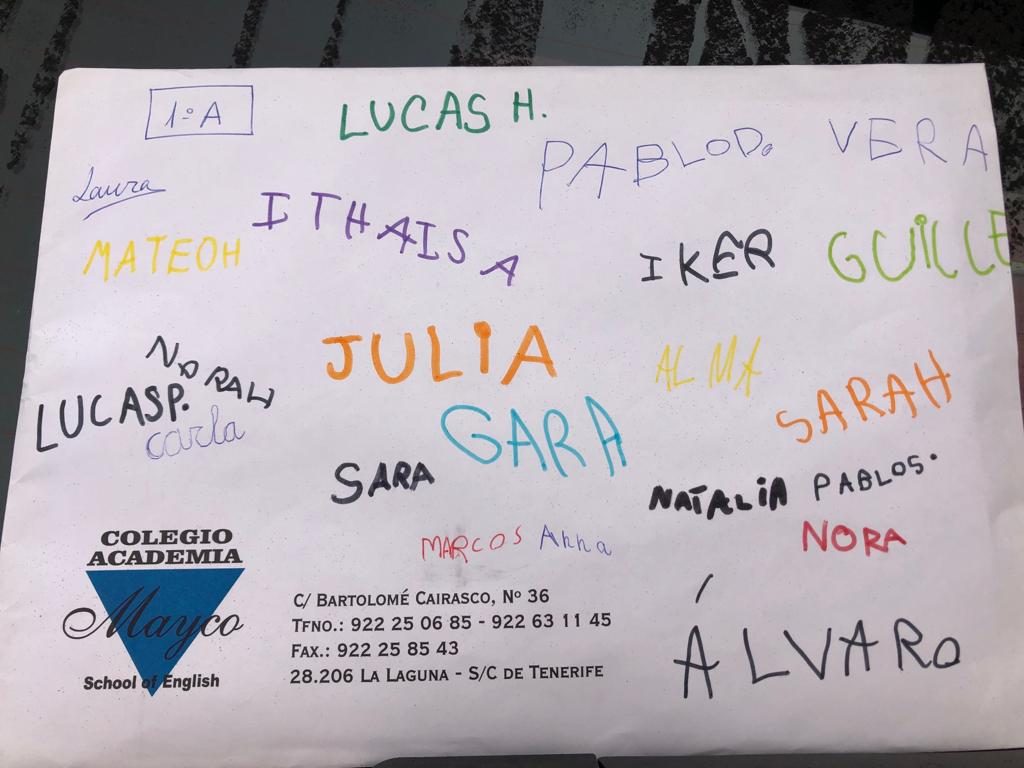 1.º A
LUCAS H.
PABLO D.
VERA
Laura
ITHAISA
MATEO H
IKER
GUILLE
NORAH
JULIA
ALMA
LUCAS P.
SARAH
Carla
GARA
SARA
NATALIA
PABLO S.
MARCOS
Anna
NORA
ÁLVARO
COLEGIO
ACADEMIA
Mayco
School of English
C/ BARTOLOMÉ CAIRASCO, Nº 36
TFNO.: 922 25 06 85 - 922 63 11 45
FAX.: 922 25 85 43
28.206 LA LAGUNA - S/C DE TENERIFE